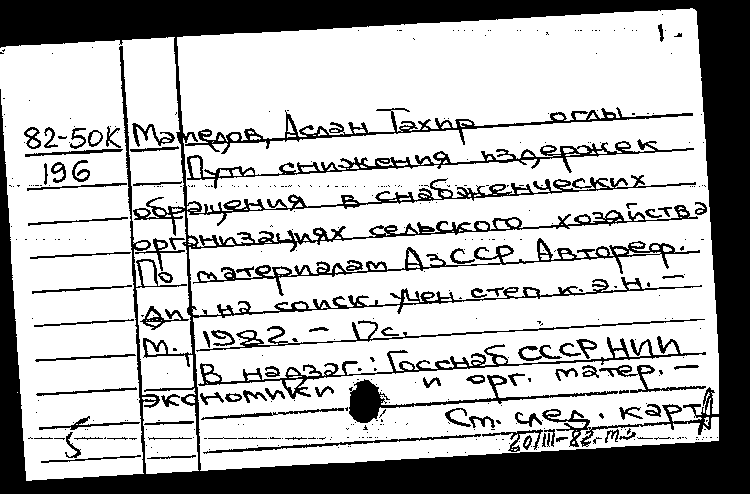 1.
82-50К Мамедов, Аслан Тахир оглы.
196 Пути снижения издержек
обращения в снабженческих
организациях сельского хозяйства
По материалам АзССР. Автореф.
дис. на соиск. учен. степ к.э.н. –
М., 1982. – 17с.
В надзаг.: Госснаб СССР, НИИ
экономики и орг. матер. –
См. след. карт
5 20/III-82.